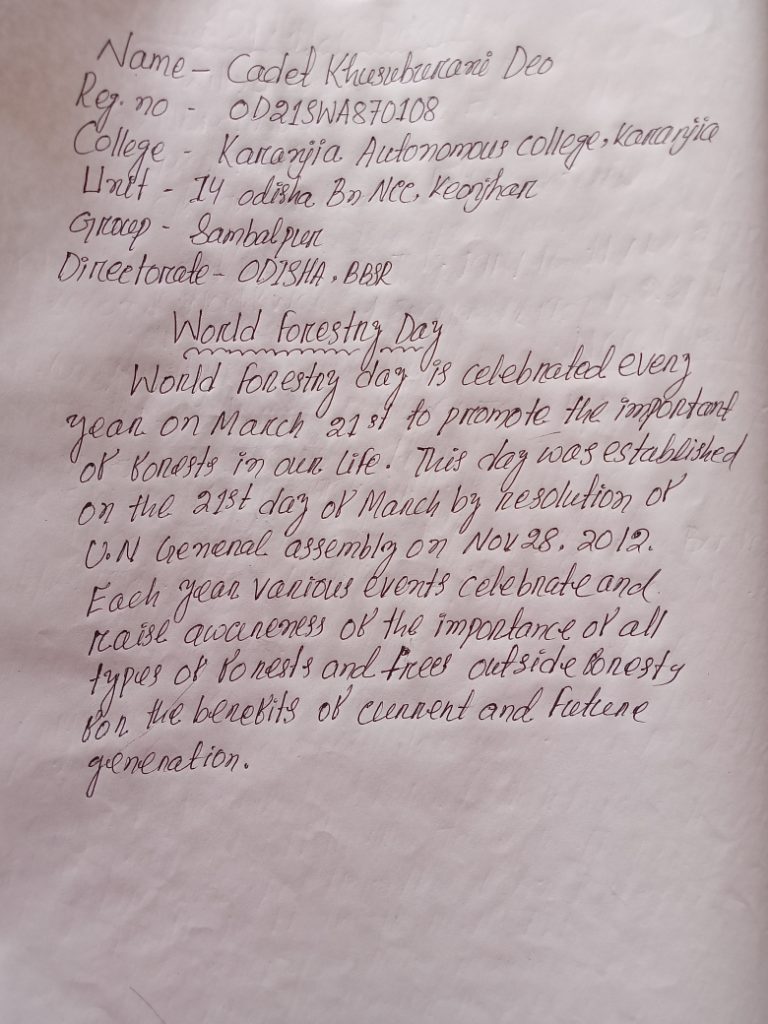 Name - Cadet Khusuburani Deo
Reg. no - OD21SWA870108
College - Karanjia Autonomous college, Karanjia
Unit - 14 odisha Bn NCC, Keonjhar
Group - Sambalpur
Directorate - ODISHA, BBSR
World Forestry Day
World Forestry day is celebrated every
year on March 21st to promote the important
of forests in our life. This day was established
on the 21st day of March by resolution of
U.N General assembly on Nov 28, 2012.
Each year various events celebrate and
raise awareness of the importance of all
types of forests and trees outside foresty
for the benefits of current and future
generation.